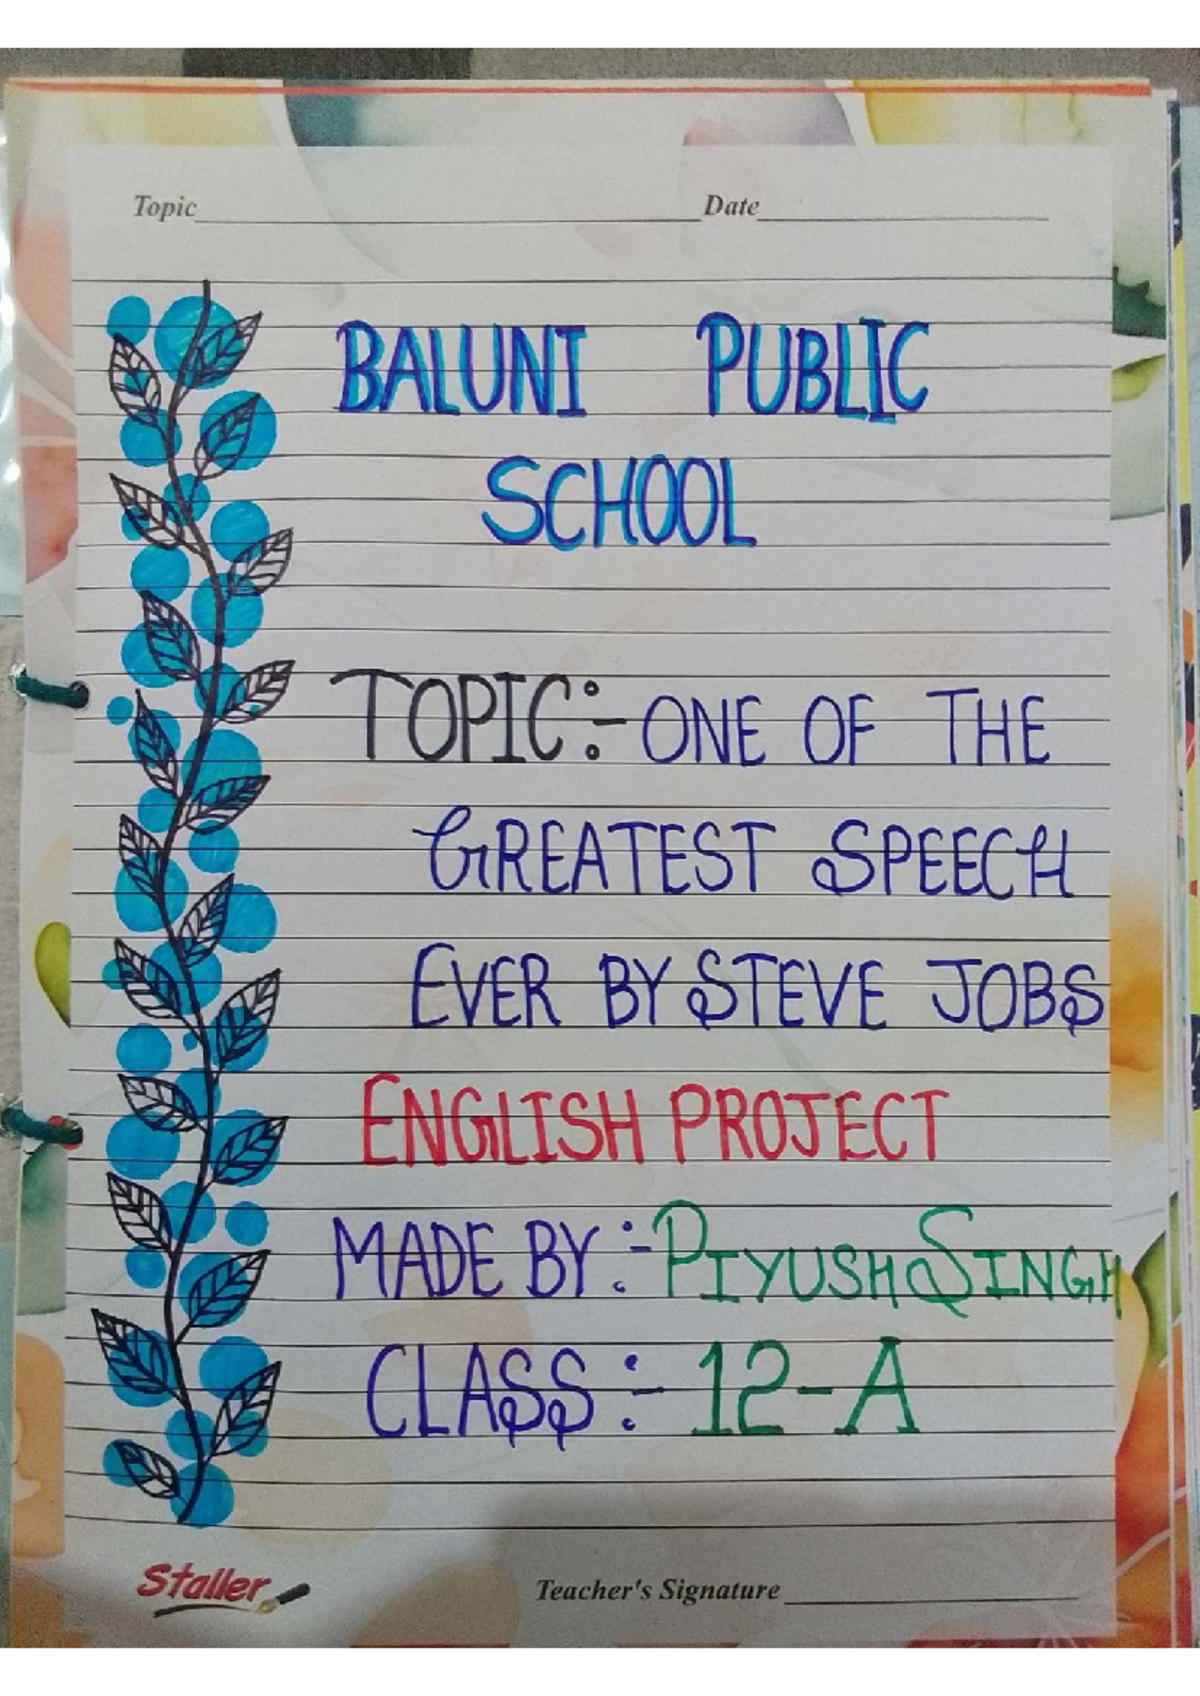 Topic Date
BALUNI PUBLIC
SCHOOL
TOPIC:- ONE OF THE
GREATEST SPEECH
EVER BY STEVE JOBS
ENGLISH PROJECT
MADE BY:- PIYUSH SINGH
CLASS:- 12-A
Staller
Teacher's Signature